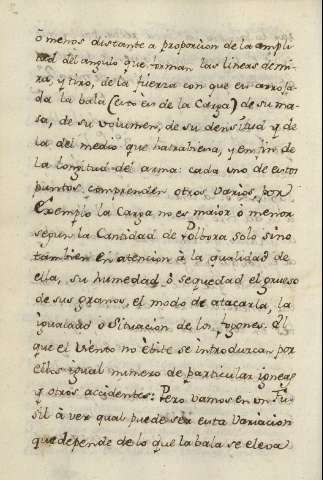 ó menos distante a proporcion de la ampli
tud del angulo que forman las lineas de mi
ra, y tiro, de la fuerza con que es arroja
da la bala (esto es de la Carga) de su ma
sa, de su volumen, de su densitud y de
la del medio que hatraviesa, y en fin de
la longitud del arma: cada uno de estos
puntos comprenden otros varios, por
Exemplo la Carga no es maior ó menor
segun la Cantidad de Polbora solo sino
tambien en atencion à la qualidad de
ella, su humedad ò sequedad el grueso
de sus granos, el modo de atacarla, la
igualdad o situacion de los fogones.
que el viento no ebite se introduzcan por
ellos igual numero de particulas igneas
y otros accidentes: Pero vamos en un Fu
sil à ver qual puede ser esta Variacion
que depende de lo que la bala se eleva